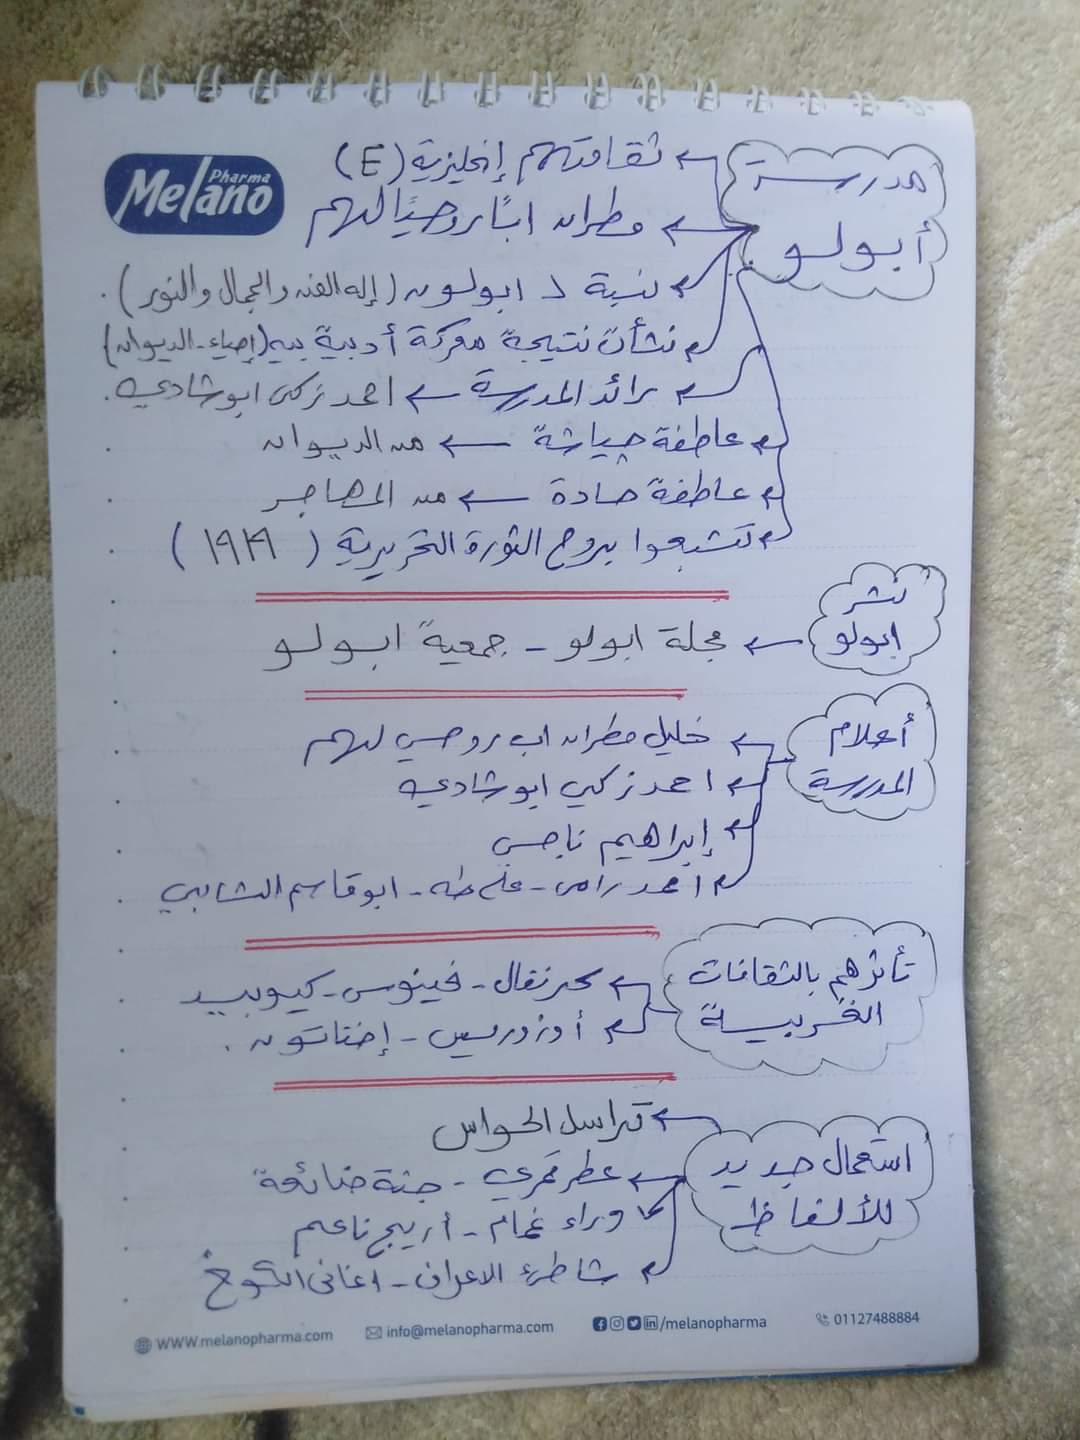 Melano Pharma
مدرسة أبولو
ثقافتهم إنجليزية (E)
مطران ابًا روحيًا لهم
نسبة لـ ابولون (إله الفن والجمال والنور).
نشأت نتيجة معركة أدبية بين (إحياء - الديوان)
رائد المدرسة ← احمد زكى ابو شادي.
عاطفة جياشة ← من الديوان
عاطفة حادة ← من المهاجر
تشبعوا بروح الثورة التحريرية (١٩١٩)
نشر ابولو
مجلة ابولو - جمعية ابولو
أعلام المدرسة
خليل مطران اب روحي لهم
احمد زكي ابو شادي
إبراهيم ناجي
احمد رامى - على طه - ابو قاسم الشابي
تأثرهم بالثقافات الغربيــة
كرنفال - فينوس - كيوبيد
أوزوريس - إخناتون.
استعمال جديد للألفاظ
تراسل الحواس
عطر قمري - جنة ضائعة
وراء غمام - أريج ناعم
شاطئ الاعراف - اغانى الكوخ
WWW.melanopharma.com
info@melanopharma.com
/melanopharma
01127488884